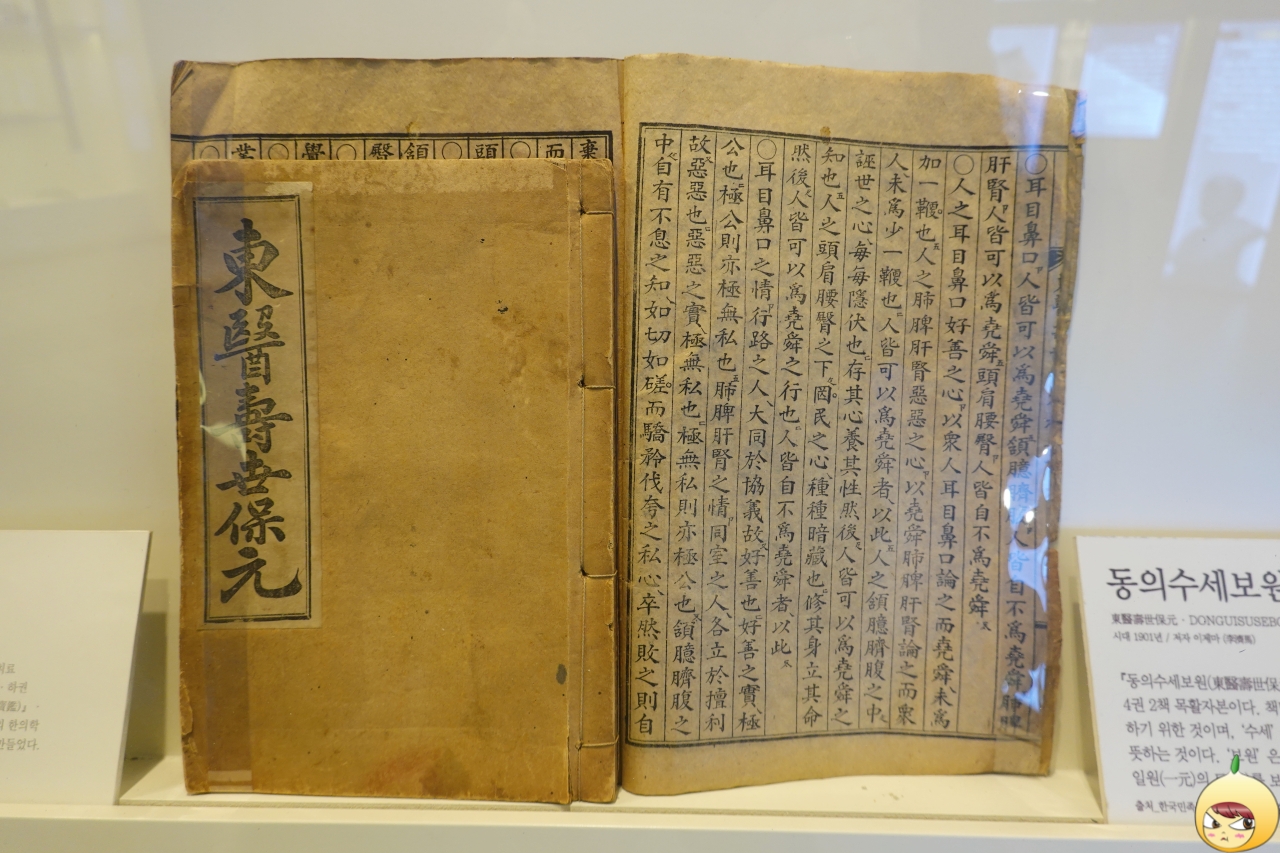 東醫壽世保元
棄
而
○
頭
○
頷
臀
○
覺
○
業
○
○耳目鼻口人皆可以爲堯舜頷臆臍腹人皆自不爲堯舜肺脾
肝腎人皆可以爲堯舜頭肩腰臀人皆自不爲堯舜
○人之耳目鼻口好善之心以衆人耳目鼻口論之而堯舜未爲
加一鞭也人之肺脾肝腎惡惡之心以堯舜肺脾肝腎論之而衆
人未爲少一鞭也人皆可以爲堯舜者以此人之頷臆臍腹之中
誣世之心每每隱伏也存其心養其性然後人皆可以爲堯舜之
知也人之頭肩腰臀之下罔民之心種種暗藏也修其身立其命
然後人皆可以爲堯舜之行也人皆自不爲堯舜者以此
○耳目鼻口之情行路之人大同於協義故好善也好善之實極
公也極公則亦極無私也肺脾肝腎之情同室之人各立於擅利
故惡惡也惡惡之實極無私也極無私則亦極公也頷臆臍腹之
中自有不息之知如切如磋而驕矜伐夸之私心卒然敗之則自
동의수세보원
東醫壽世保元 · DONGUISUSEBO
시대 1901년 / 저자 이제마 (李濟馬)
『동의수세보원(東醫壽世保
4권 2책 목활자본이다. 책
하기 위한 것이며, '수세'
뜻하는 것이다. '보원' 은
일원(一元)의
출처_한국민족
의료
· 하권
한의학
만들었다.